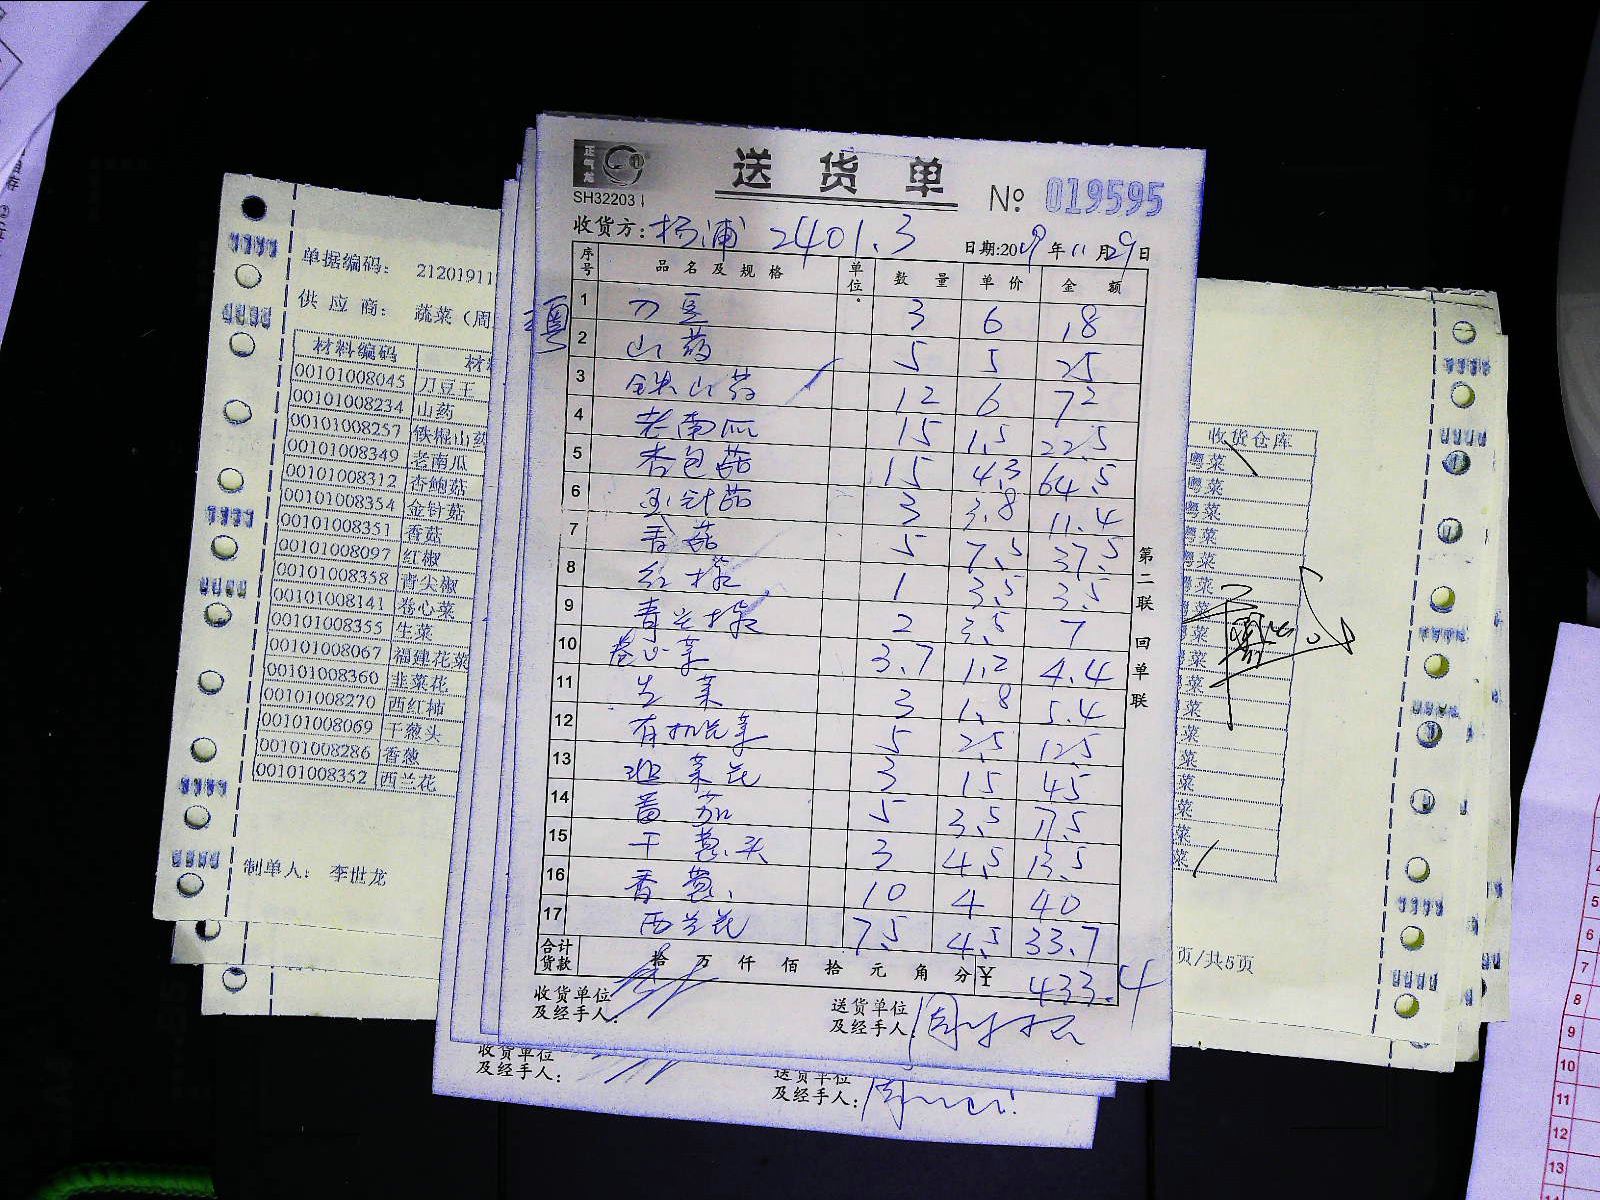 正气龙
SH32203
送 货 单
№ 019595
收货方: 杨浦 2401.3 日期:2019年11月29日
序号 品名及规格 单位 数量 单价 金额
粤
1 刀豆 3 6 18
2 山药 5 5 25
3 铁山药 12 6 72
4 老南瓜 15 1.5 22.5
5 杏包菇 15 4.3 64.5
6 金针菇 3 3.8 11.4
7 香菇 5 7.5 37.5
8 红椒 1 3.5 3.5
9 青尖椒 2 3.5 7
10 卷心菜 3.7 1.2 4.4
11 生菜 3 1.8 5.4
12 有机花菜 5 2.5 12.5
13 韭菜花 3 15 45
14 蕃茄 5 3.5 17.5
15 干葱头 3 4.5 13.5
16 香葱 10 4 40
17 西兰花 7.5 4.5 33.7
合计货款 拾 万 仟 佰 拾 元 角 分 ¥ 433.4
收货单位及经手人:
送货单位及经手人: 周
第二联 回单联
收货单位及经手人:
送货单位及经手人: 周
单据编码: 21201911
供应商: 蔬菜(周
材料编码 材料
00101008045 刀豆王
00101008234 山药
00101008257 铁棍山药
00101008349 老南瓜
00101008312 杏鲍菇
00101008354 金针菇
00101008351 香菇
00101008097 红椒
00101008358 青尖椒
00101008141 卷心菜
00101008355 生菜
00101008067 福建花菜
00101008360 韭菜花
00101008270 西红柿
00101008069 干葱头
00101008286 香葱
00101008352 西兰花
制单人: 李世龙
收货仓库
粤菜
粤菜
粤菜
粤菜
粤菜
粤菜
粤菜
粤菜
粤菜
粤菜
菜
菜
菜
菜
菜
菜
菜
页/共5页
5
6
7
8
9
10
11
12
13